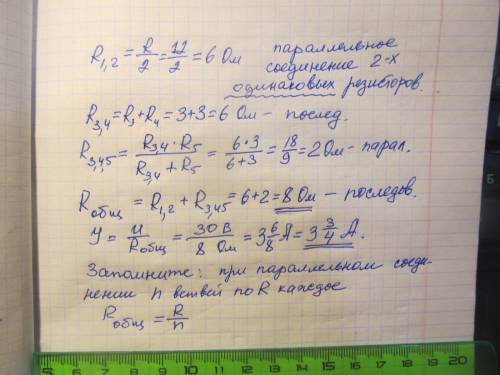 R₁,₂ = R/2 = 12/2 = 6 Ом параллельное
соединение 2-х
одинаковых резисторов.
R₃,₄ = R₃ + R₄ = 3 + 3 = 6 Ом – послед.
R₃,₄₅ = R₃,₄ · R₅ / R₃,₄ + R₅ = 6·3 / 6+3 = 18/9 = 2 Ом – парал.
R общ = R₁,₂ + R₃,₄₅ = 6 + 2 = 8 Ом – последов.
У = U / R общ = 30 В / 8 Ом = 3 6/8 А = 3 3/4 А.
Запомните: при параллельном соеди-
нении n ветвей по R каждое
R общ = R/n
5 6 7 8 9 10 11 12 13 14 15 16 17 18 19 20